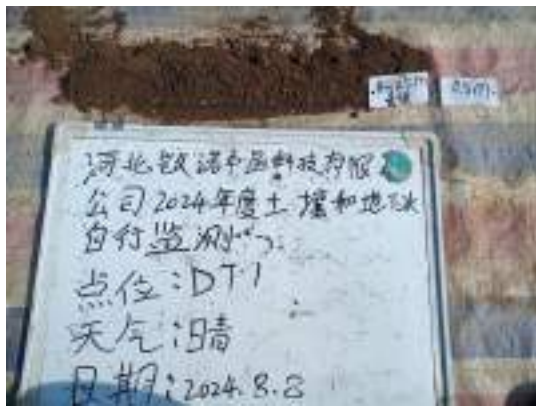 0.5m
河北
科技有限
公司2024年度土壤和地下水
自行监测
点位:DT1
天气:晴
日期:2024.8.8